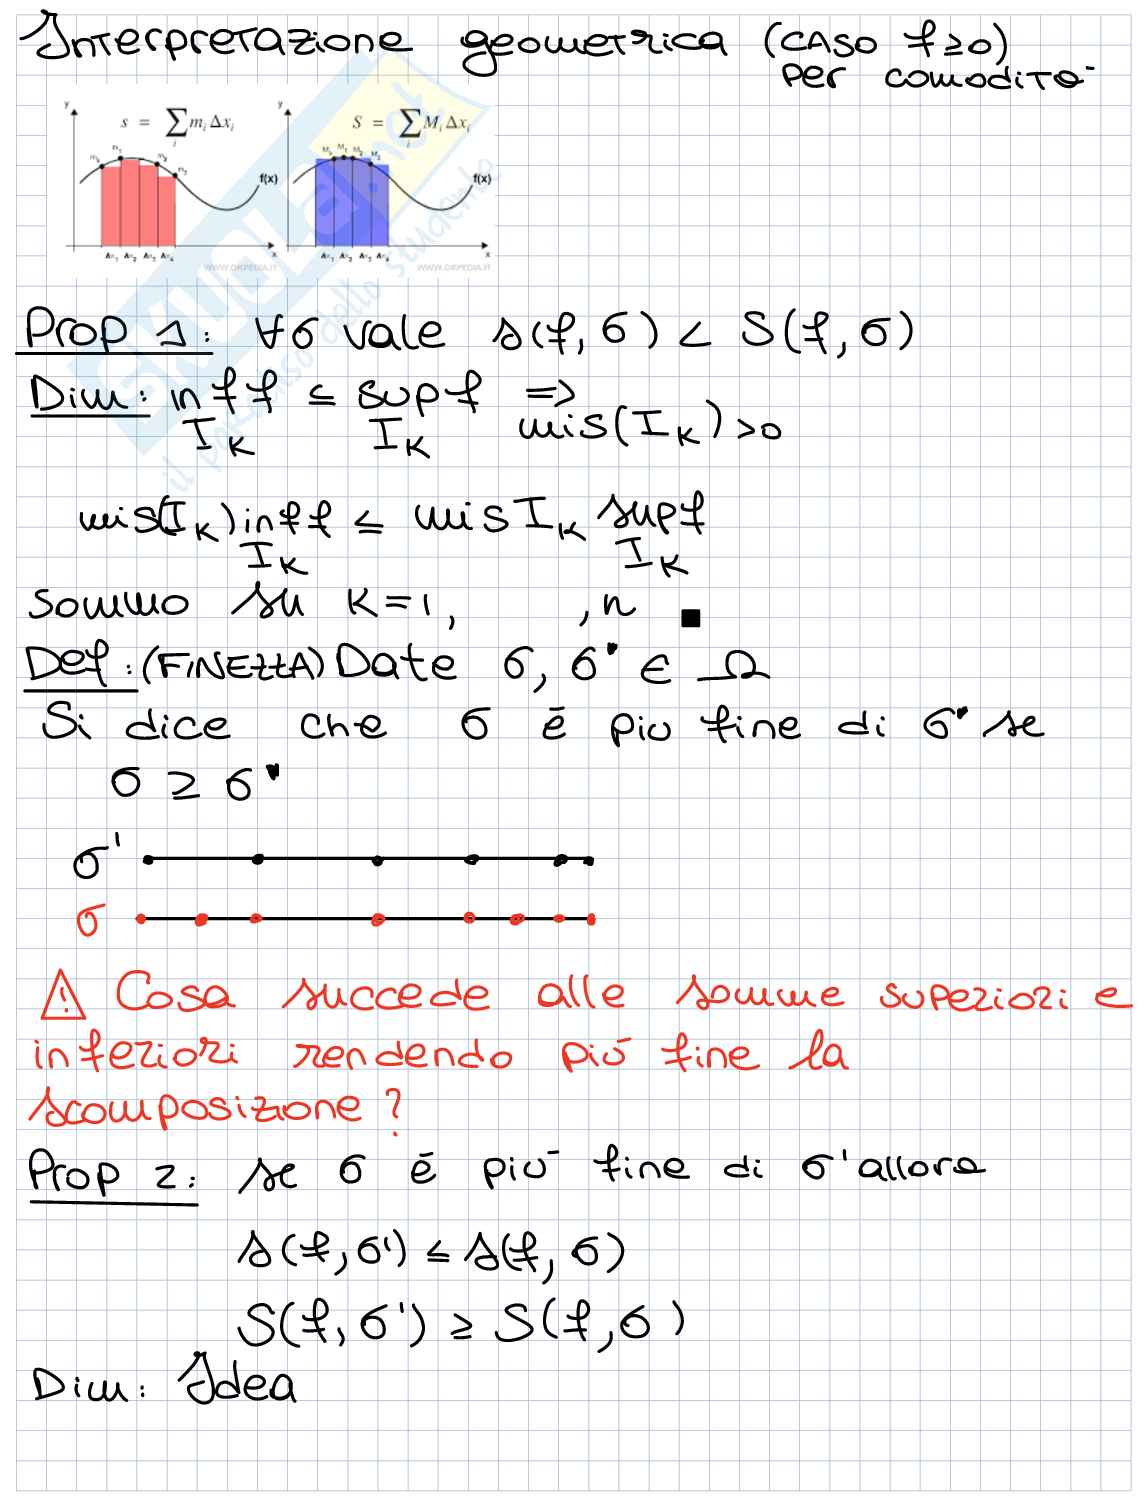 Interpretazione geometrica (CASO f≥0)
per comodità
y s = ∑ mᵢ Δxᵢ
i
m₁ m₂ m₃ f(x)
Δx₁ Δx₂ Δx₃ Δx₄ x
WWW.OKPEDIA.IT
y S = ∑ Mᵢ Δxᵢ
i
M₁ M₂ M₃ f(x)
Δx₁ Δx₂ Δx₃ Δx₄ x
WWW.OKPEDIA.IT
SKUOLA.net
il paradiso dello studente
Prop 1: ∀σ vale s(f,σ) < S(f,σ)
Dim: inf f ≤ sup f =>
I_K I_K mis(I_K)>0
mis(I_K) inf f ≤ mis I_K sup f
I_K I_K
sommo su K=1, ,n ■
Def: (FINEZZA) Date σ, σ' ∈ Ω
Si dice che σ è più fine di σ' se
σ ≥ σ'
σ'
σ
⚠ Cosa succede alle somme superiori e
inferiori rendendo più fine la
scomposizione?
Prop 2: se σ è più fine di σ' allora
s(f,σ') ≤ s(f,σ)
S(f,σ') ≥ S(f,σ)
Dim: Idea